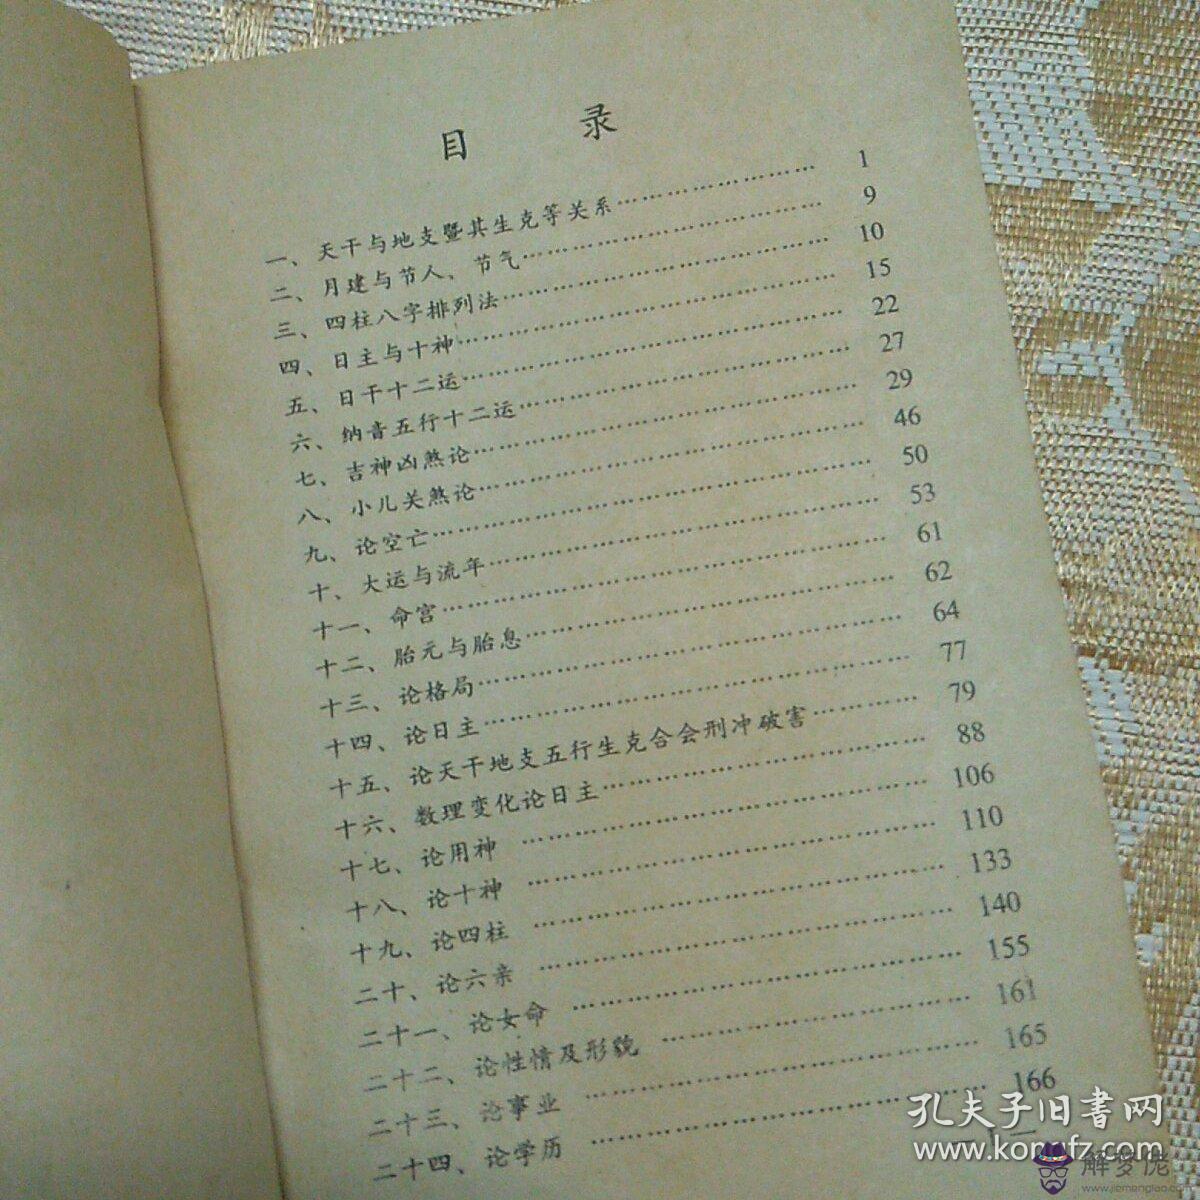 目 录
一、天干与地支暨其生克等关系…………………… 1
二、月建与节人、节气…………………………… 9
三、四柱八字排列法…………………………… 10
四、日主与十神………………………………… 15
五、日干十二运………………………………… 22
六、纳音五行十二运…………………………… 27
七、吉神凶煞论………………………………… 29
八、小儿关煞论………………………………… 46
九、论空亡……………………………………… 50
十、大运与流年………………………………… 53
十一、命宫……………………………………… 61
十二、胎元与胎息……………………………… 62
十三、论格局…………………………………… 64
十四、论日主…………………………………… 77
十五、论天干地支五行生克合会刑冲破害………… 79
十六、数理变化论日主………………………… 88
十七、论用神 ………………………………… 106
十八、论十神 ………………………………… 110
十九、论四柱 ………………………………… 133
二十、论六亲 ………………………………… 140
二十一、论女命 ……………………………… 155
二十二、论性情及形貌 ……………………… 161
二十三、论事业 ……………………………… 165
二十四、论学历 ……………………………… 166
孔夫子旧書网
www.kongfz.com
解梦佬
www.jiemenglao.com